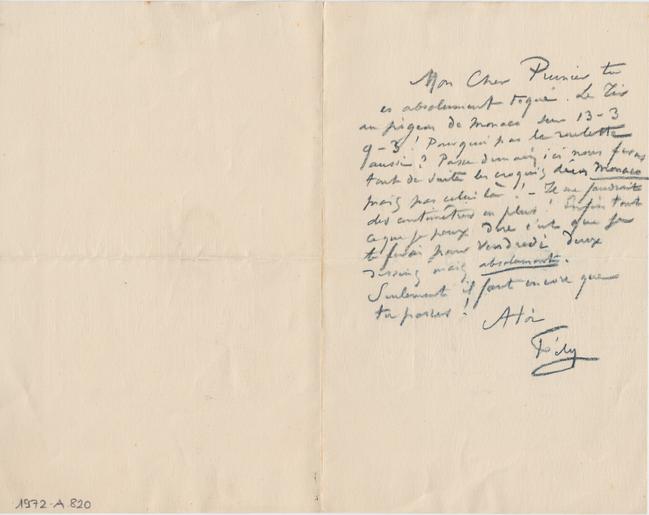 Mon Cher Prunier tu
es absolument toqué. Le Tir
au pigeon de Monaco sur 13-3
9-3! Pourquoi pas la roulette
aussi? Passe demain ici nous ferons
tout de suite les croquis Monaco
mais pas celui là! - Il me faudrait
des centimètres en plus! Enfin tout
ce que je peux dire c'est que je
te ferai pour Vendredi deux
dessins mais absolument.
Seulement il faut encore que
tu passes!
A toi
1972-A 820